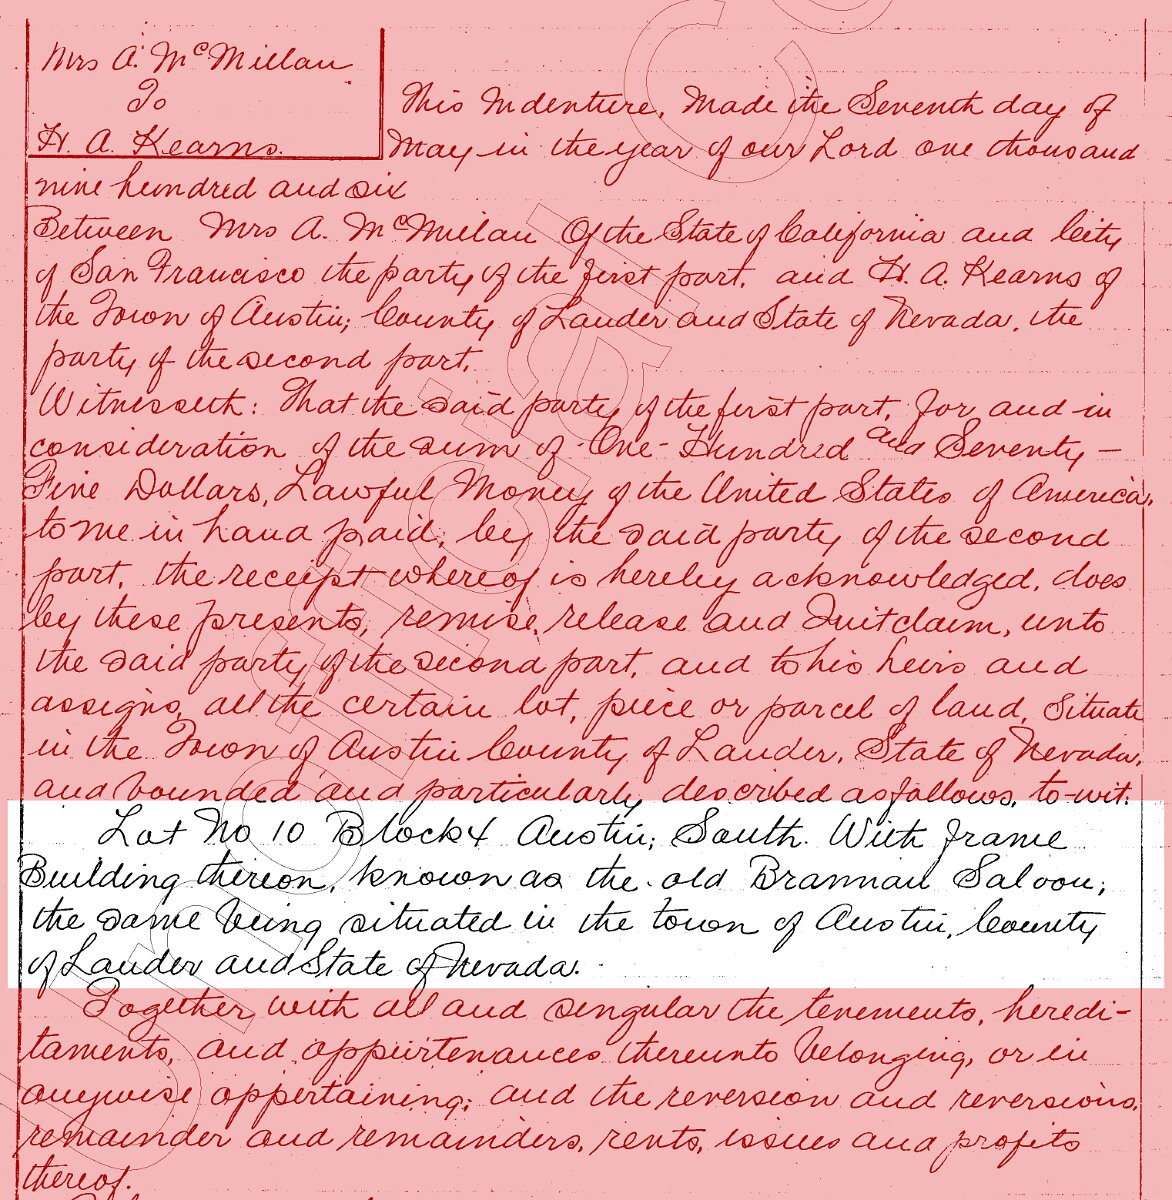 Mrs A. McMillan
To
H. A. Kearns.
This Indenture, Made the Seventh day of
May in the year of our Lord one thousand
nine hundred and six
Between Mrs A. McMillan Of the State of California and City
of San Francisco the party of the first part, and H. A. Kearns of
the Town of Austin; County of Lander and State of Nevada, the
party of the second part,
Witnesseth: That the said party of the first part, for and in
consideration of the sum of One Hundred and Seventy-
Five Dollars, Lawful Money of the United States of America,
to me in hand paid, by the said party of the second
part, the receipt whereof is hereby acknowledged, does
by these presents, remise, release and Quitclaim, unto
the said party of the second part, and to his heirs and
assigns, all the certain lot, piece or parcel of land, Situate
in the Town of Austin County of Lander, State of Nevada,
and bounded and particularly described as follows, to-wit:
Lot No 10 Block 4 Austin; South. With frame
Building thereon, known as the old Brannan Saloon;
the same being situated in the town of Austin, County
of Lander and State of Nevada.
Together with all and singular the tenements, heredi-
taments, and appurtenances thereunto belonging, or in
anywise appertaining; and the reversion and reversions,
remainder and remainders, rents, issues and profits
thereof.
Unofficial Co